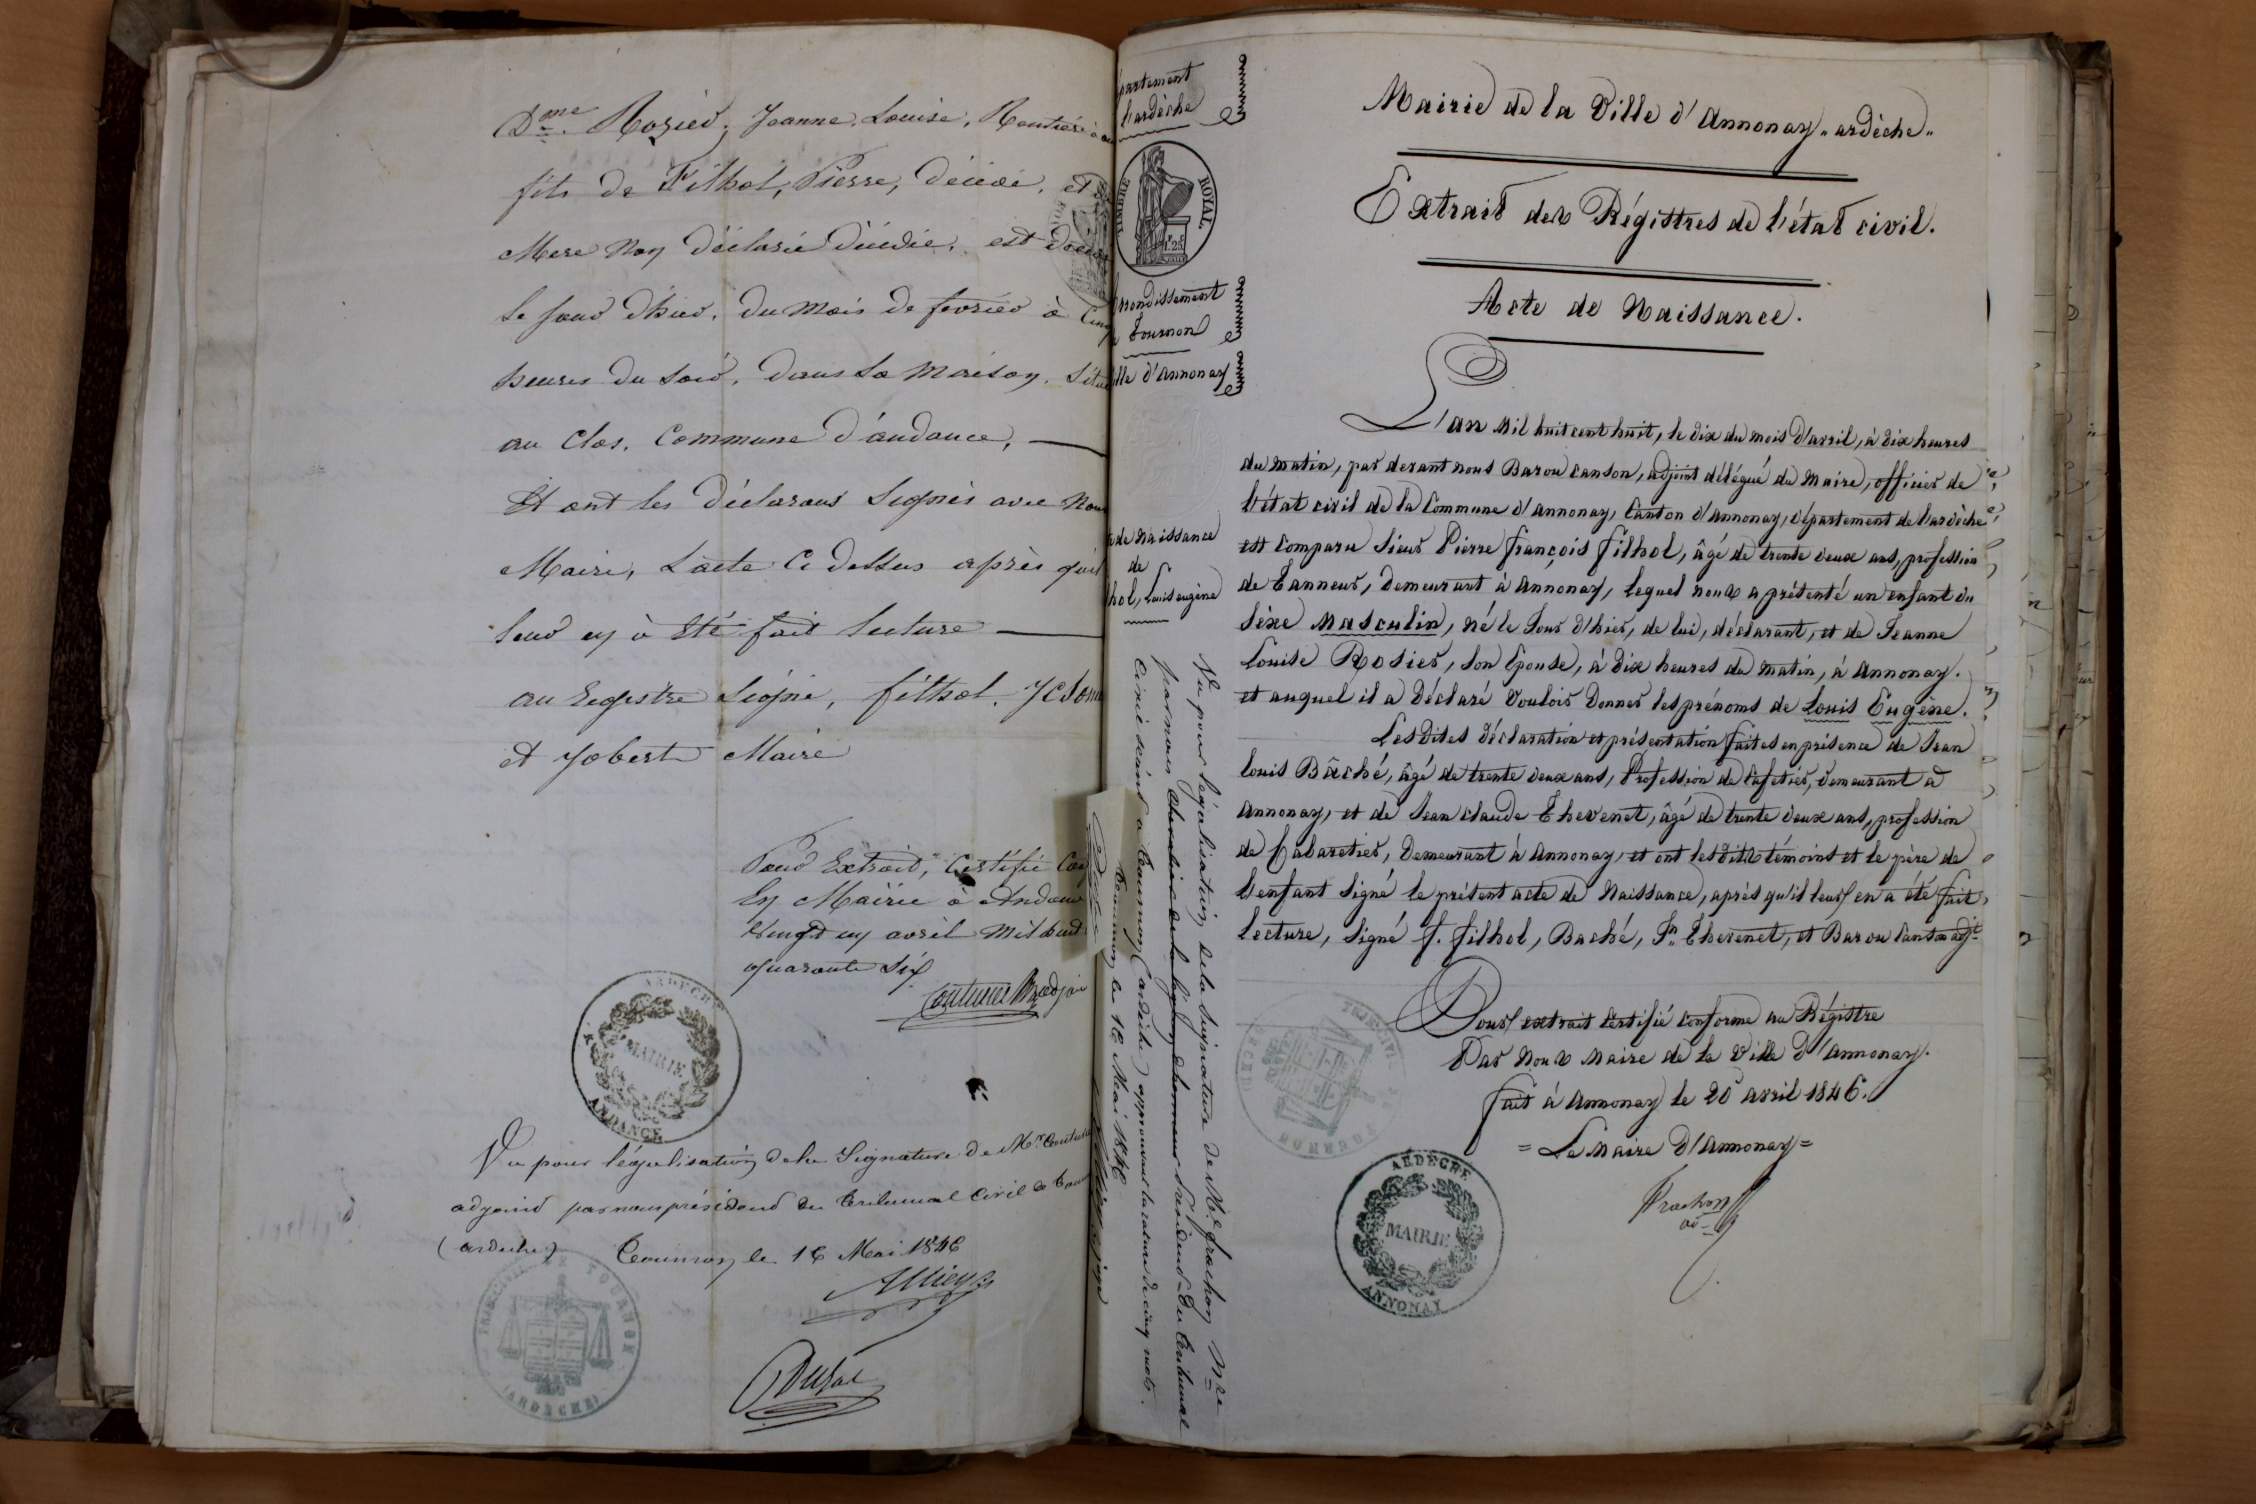 Dme Rosier, Jeanne Louise, Rentière
fils de Filhol, Pierre, Décédé, et
Mere non déclarée décédée, est
le jour d'hier, du mois de fevrier à Cinq
heures du soir, dans sa maison, Situé
au Clos, Commune d'andance,
Et ont les déclarans signés avec Nous
Maire, L'acte Ci dessus après
leur en à été fait lecture
au Registre signé, filhol,
et Jobert Maire
Pour Extrait, Certifié
En Mairie à Andance
Vingt un avril mil huit
quarante Six
ARDECHE
MAIRIE
ANDANCE
Vu pour légalisation de la Signature de Mr
adjoint par nous président du tribunal Civil de
(ardeche) Tournon le 16 Mai 1846
TRIBUNAL DE TOURNON
(ARDECHE)
partement
l'ardèche
TIMBRE ROYAL
rrondissement
Tournon
ille d'Annonay
de naissance
de
hol, Louis eugène
Vu pour légalisation de la signature de Mr frachon
par nous chevalier de la légion d'honneur Président du tribunal
Civil séant à Tournon (ardèche) approuvant la rature de cinq mots.
Tournon le 16 Mai 1846
Mairie de la Ville d'Annonay "ardèche"
Extrait des Régistres de l'état civil.
Acte de Naissance.
L'an mil huit cent huit, le dix du mois d'avril, à dix heures
du matin, par devant nous Barou canson, adjoint délégué du Maire, officier de
l'état civil de la Commune d'Annonay, Canton d'Annonay, département de l'ardèche
est Comparu Sieur Pierre françois filhol, âgé de trente deux ans, profession
de Tanneur, demeurant à Annonay, lequel nous a présenté un enfant du
Sèxe Masculin, né le Jour d'hier, de lui, déclarant, et de Jeanne
Louise Rosier, son Epouse, à dix heures du matin, à Annonay.
et auquel il a déclaré Vouloir Donner les prénoms de Louis Eugène.
Les Dites déclaration et présentation faites en présence de Jean
louis Bâché, âgé de trente deux ans, Profession de Cafetier, demeurant à
Annonay, et de Jean claude Thevenet, âgé de trente deux ans, profession
de Cabaretier, Demeurant à Annonay, et ont lesdits témoins et le père de
l'enfant Signé le présent acte de Naissance, après qu'il leur en a été fait
lecture, Signé f. filhol, Baché, Jn Thevenet, et Barou Canson adjt
Pour extrait Certifié conforme au Régistre
Par Nous Maire de la Ville d'Annonay.
fait à Annonay le 20 avril 1846.
= Le Maire d'Annonay =
Frachon
ad
ARDECHE
MAIRIE
ANNONAY